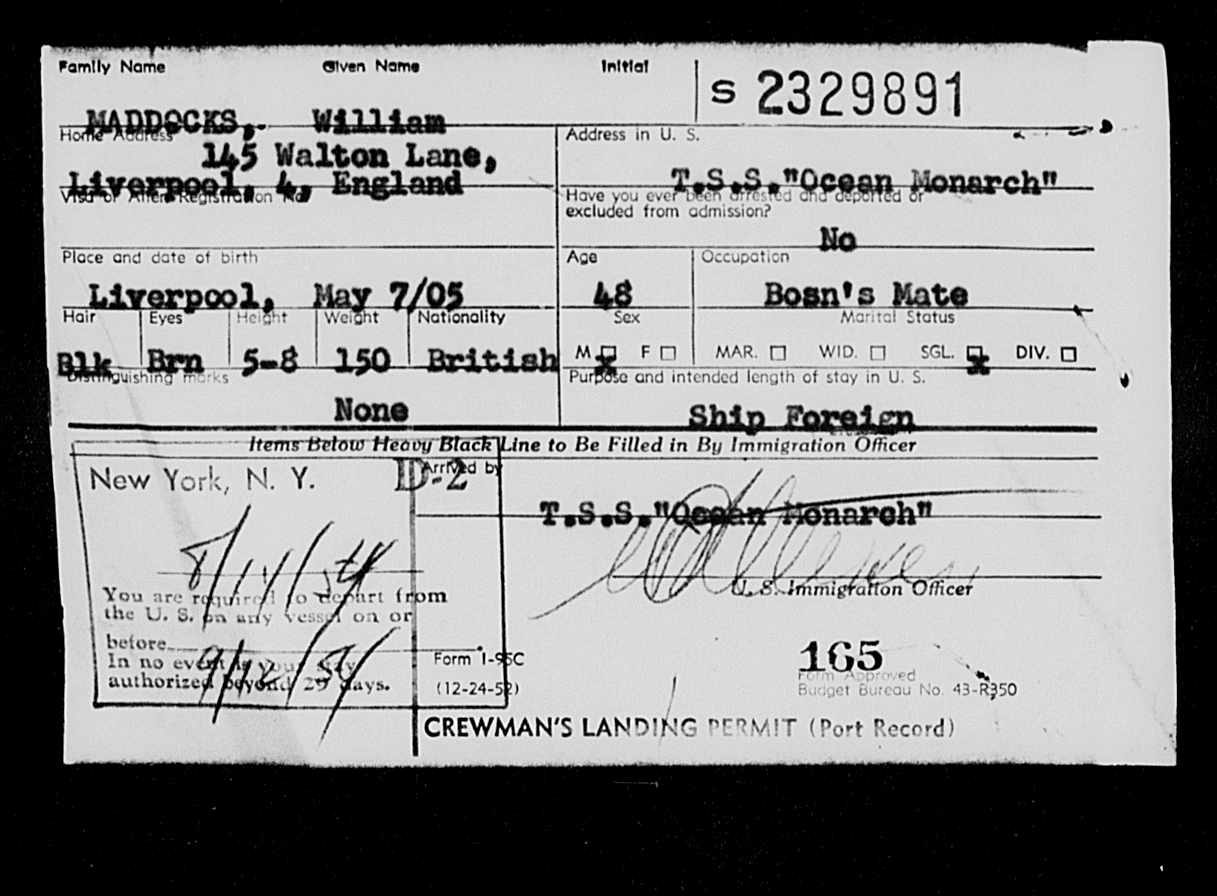 Family Name Given Name Initial
S 2329891
MADDOCKS, William
Home Address
145 Walton Lane,
Liverpool, 4, England
Address in U. S.
T.S.S."Ocean Monarch"
Visa or Alien Registration No.
Have you ever been arrested and deported or
excluded from admission?
No
Place and date of birth
Liverpool, May 7/05
Age
48
Occupation
Bosn's Mate
Hair Eyes Height Weight Nationality
Blk Brn 5-8 150 British
Sex
M x F
Marital Status
MAR. WID. SGL. x DIV.
Distinguishing marks
None
Purpose and intended length of stay in U. S.
Ship Foreign
Items Below Heavy Black Line to Be Filled in By Immigration Officer
New York, N. Y. D-2
8/14/54
You are required to depart from
the U. S. on any vessel on or
before
9/12/54
In no event is your stay
authorized beyond 29 days.
Arrived by
T.S.S."Ocean Monarch"
U. S. Immigration Officer
165
Form I-95C
(12-24-52)
Form Approved
Budget Bureau No. 43-R350
CREWMAN'S LANDING PERMIT (Port Record)